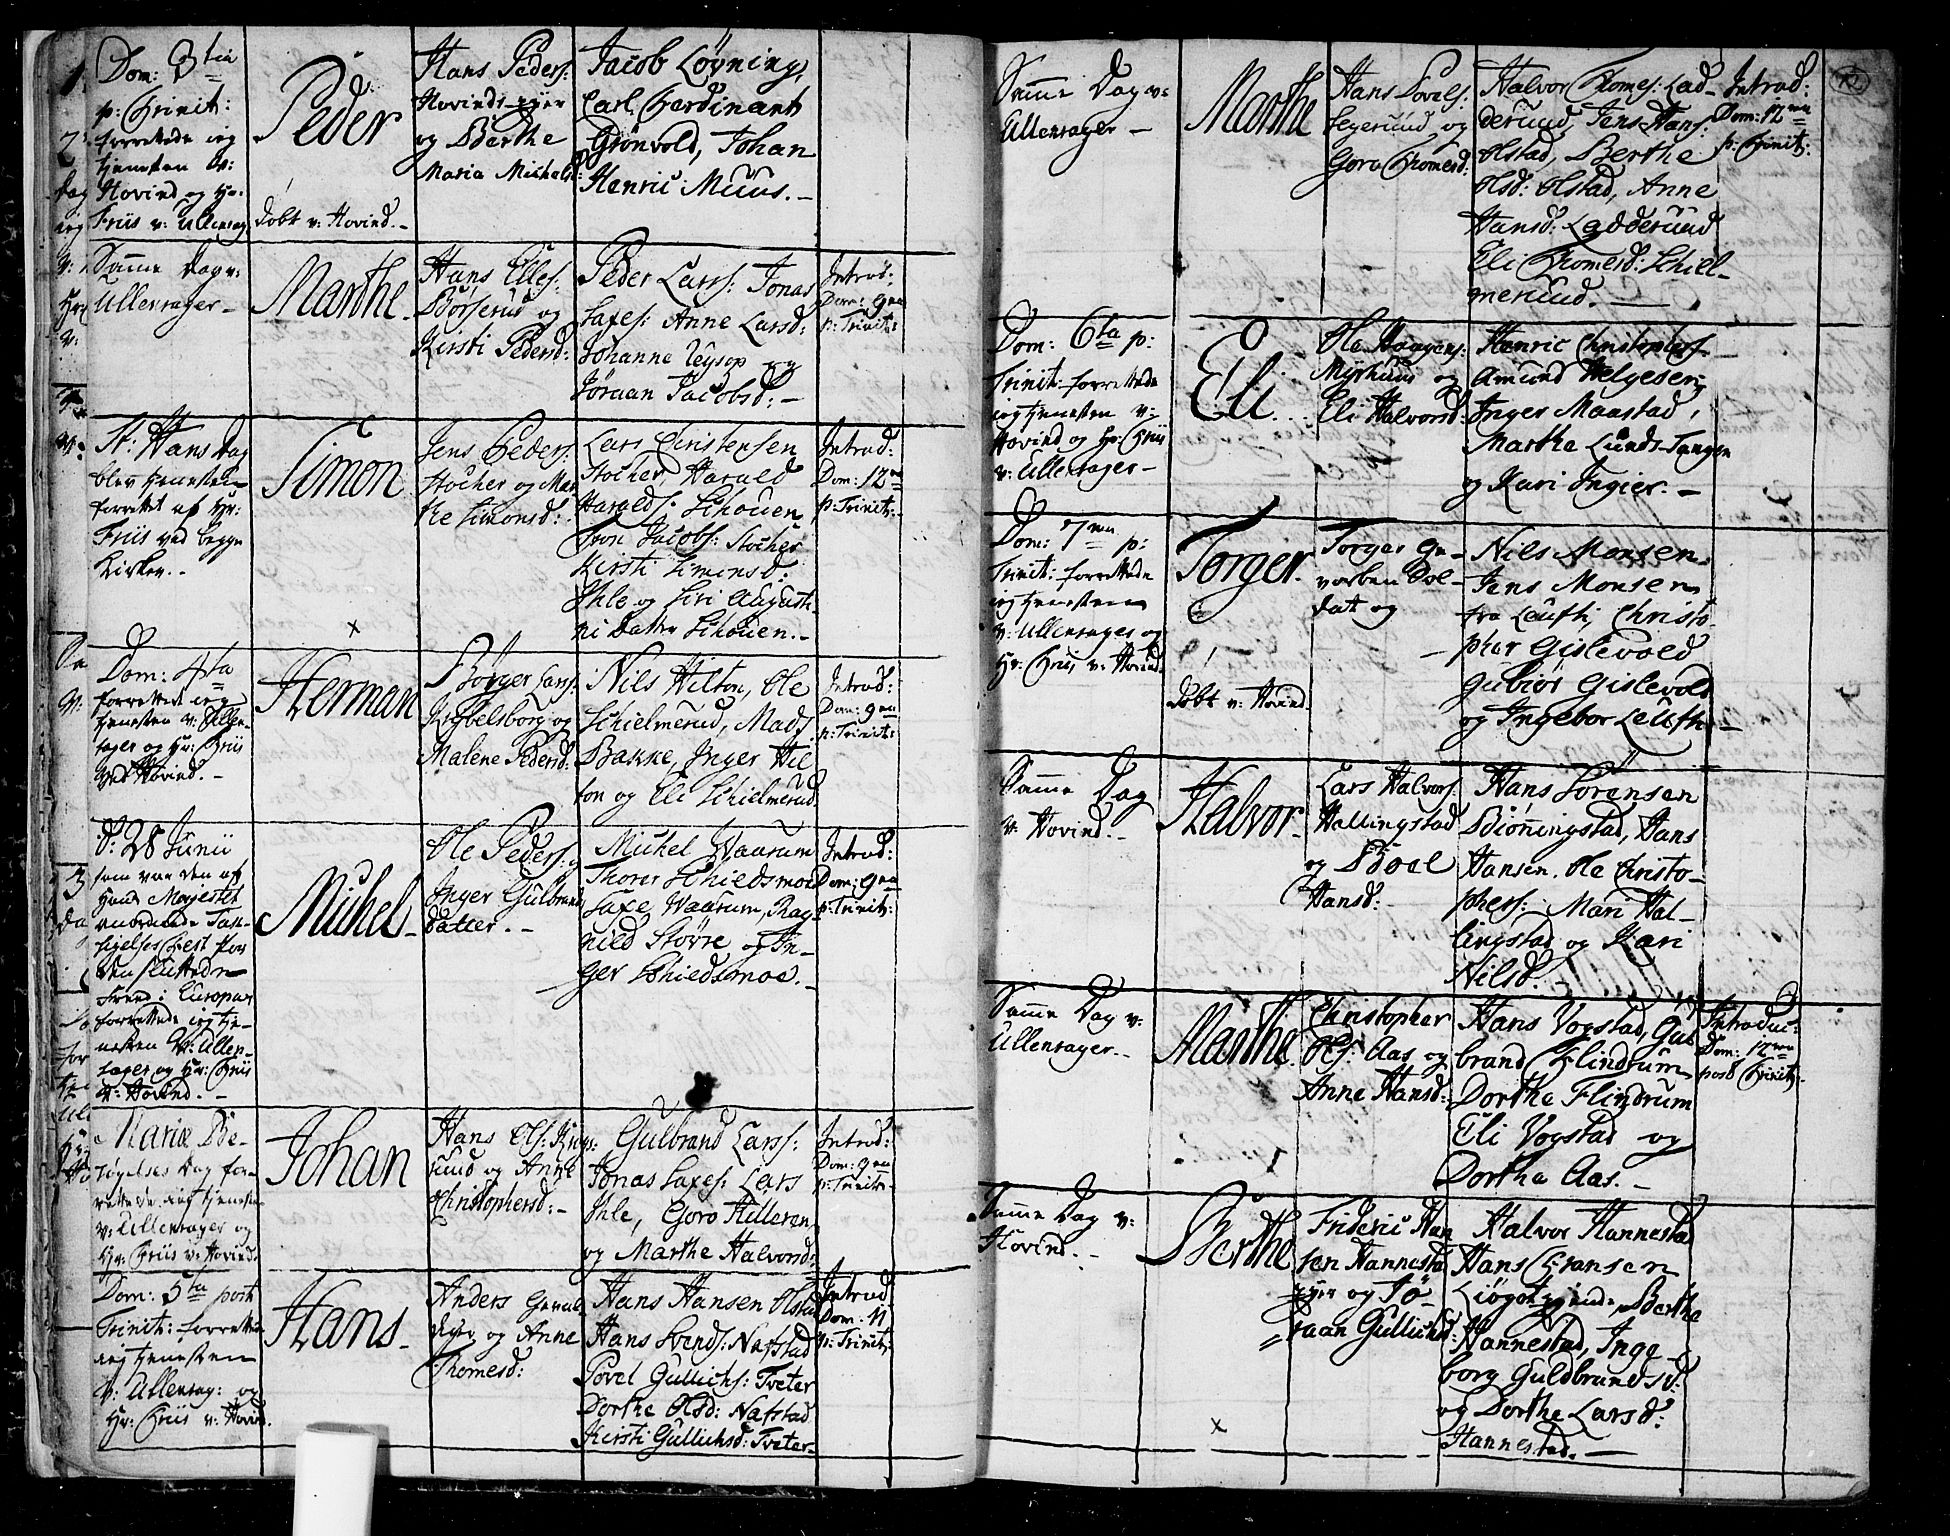 Dom: 3tia
p: Trinit:
forrettede ieg
tjenesten v:
Hovind og Hr:
Friis v: Ullensag:
Peder
døbt v: Hovind.
Hans Peders:
Hovinds eyer
og Berthe
Maria Michelsd:
Jacob Løvning,
Carl Ferdinant
Grönvold, Johan
Henric Muus.
Samme Dag v:
Ullensager
Marthe.
Hans Ells:
Borserud og
Kirsti Pedersd:
Peder Larss: Jonas
Saxes: Anne Larsd:
Johanne og
Jøraan Jacobsd:
Introd:
Dom: 9na
p: Trinit:
St: Hans Dag
blev tjenesten
forrettet af Hr:
Friis ved begge
Kirker.
Simon
Jens Peders:
Stocher og Mar
the Simonsd:
Lars Christensen
Stocher, Harald
Haralds: Schouen
Iver Jacobs: Stocher
Kirsti Simensd:
Ihle og Siri Augusti-
ni Datter Schouen.
Introd:
Dom: 12ma
p: Trinit:
Dom: 4ta
forrettet ieg
tjenesten v: Ullen-
sager og Hr: Friis
ved Hovind.
x
Herman
Börger Larss:
Krybelsborg og
Malene Pedersd:
Nils Hilton, Ole
Schielmerud, Mads
Bakke, Inger Hil
ton og Eli Schielmerud
Introd:
Dom: 9na
p: Trinit:
d: 28 Junii
som var den af
Hans Majestet
anordnede Tak-
sigelses Fest for
den sluttede
Freed i Europa
forrettede ieg tje-
nesten v: Ullen-
sager og Hr: Friis
v: Hovind.
Michel
Ole Peders: og
Inger Gulbrands
datter.
Michel Waarum
Thorer Schiedsmoe
Saxe Waarum, Rag-
nild Större og In-
ger Schiedsmoe.
Introd:
Dom: 9na
p: Trinit:
Mariæ Be-
søgelses Dag for-
rettede ieg tjenesten
v: Ullensager og
Hr: Friis v: Hovind.
Johan
Hans Ols: Krogs-
rund og Anne
Christophersd:
Gulbrand Larss:
Jonas Saxes: Lars
Ihle, Goro Hilleren
og Marthe Halvorsd:
Introd:
Dom: 9na
p: Trinit:
Dom: 5ta post
Trinit: forrettede
ieg tjenesten
v: Ullensag: og
Hr: Friis v: Hovind.
Hans
Anders
og Anne
Thomesd:
Hans Hansen Olstad
Hans Svends: Nafstad
Povel Gullichs: Tveter
Dorthe Olsd: Nafstad
Kirsti Gullichsd: Tveter
Introd
Dom: 11
p: Trinit:
12
Samme Dag v:
Ullensager
Marthe
Hans Povels:
Segerund og
Goro Thomesd:
Halvor Thomes: Lad-
derund, Jens Hans:
Olstad, Berthe
Olsd: Olstad, Anne
Hansd: Ladderuud
Eli Thomesd: Schiel-
meruud.
Introd:
Dom: 12ma
p: Trinit:
Dom: 6ta p:
Trinit: forrettede
ieg tjenesten v:
Hovind og Hr: Friis
v: Ullensager
Eli
Ole Haagens:
Myrhuus og
Eli Halvorsd:
Henric Christophers:
Amund Helgesen,
Inger Maastad,
Marthe Lunds-Tangen
og Kari Ingier.
Dom: 7ma p:
Trinit: forrettede
ieg tjenesten
v: Ullensager og
Hr: Friis v: Hovind.
Torger
døbt v: Hovind
Torger Ge-
vorben Sol-
dat og
Nils Monsen
Jens Monsen
fra Leufti, Christo-
pher Gislevold
Gubiör Gislevold
og Ingebor Leufthi
Samme Dag
v: Hovind.
Halvor
Lars Halvors:
Hallingstad
og
Hansd:
Hans Sörensen
Biönningstad, Hans
Hansen. Ole Christo-
phers: Mari Hal-
lingstad og Kari
Nilsd:
Samme Dag v:
Ullensager.
Marthe
Christopher
Ols: Aas og
Anne Hansd:
Hans Vogstad, Gul
brand Flindrum
Dorthe Flindrum
Eli Vogstad og
Dorthe Aas.
Introduc:
Dom: 12ma
post Trinit:
Samme Dag v:
Hovind.
Berthe
x
Frideric Han
sen Hannestad
eyer og Jö-
raan Gullichsd:
Halvor Hannestad
Hans Fransen
Liögot eyende, Berthe
Hannestad, Inge-
borg Guldbrandsd:
og Dorthe Larsd:
Hannestad.